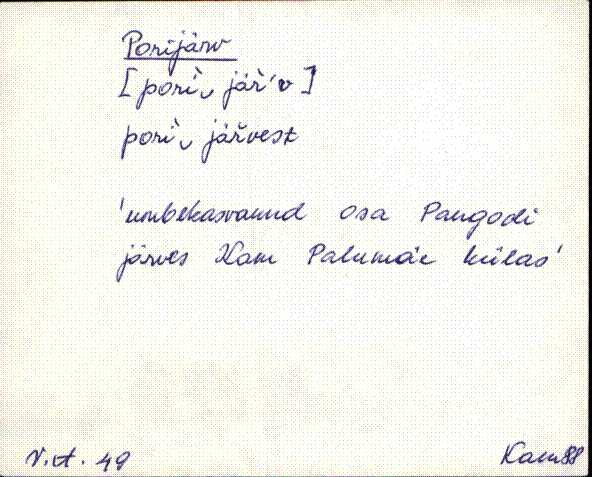 Porijärv
[pori͕, jäŕ'v]
pori͕, järvest
'umbekasvanud osa Pangodi
järves Kam Palumäe külas'
V.A. 49
Kam 88